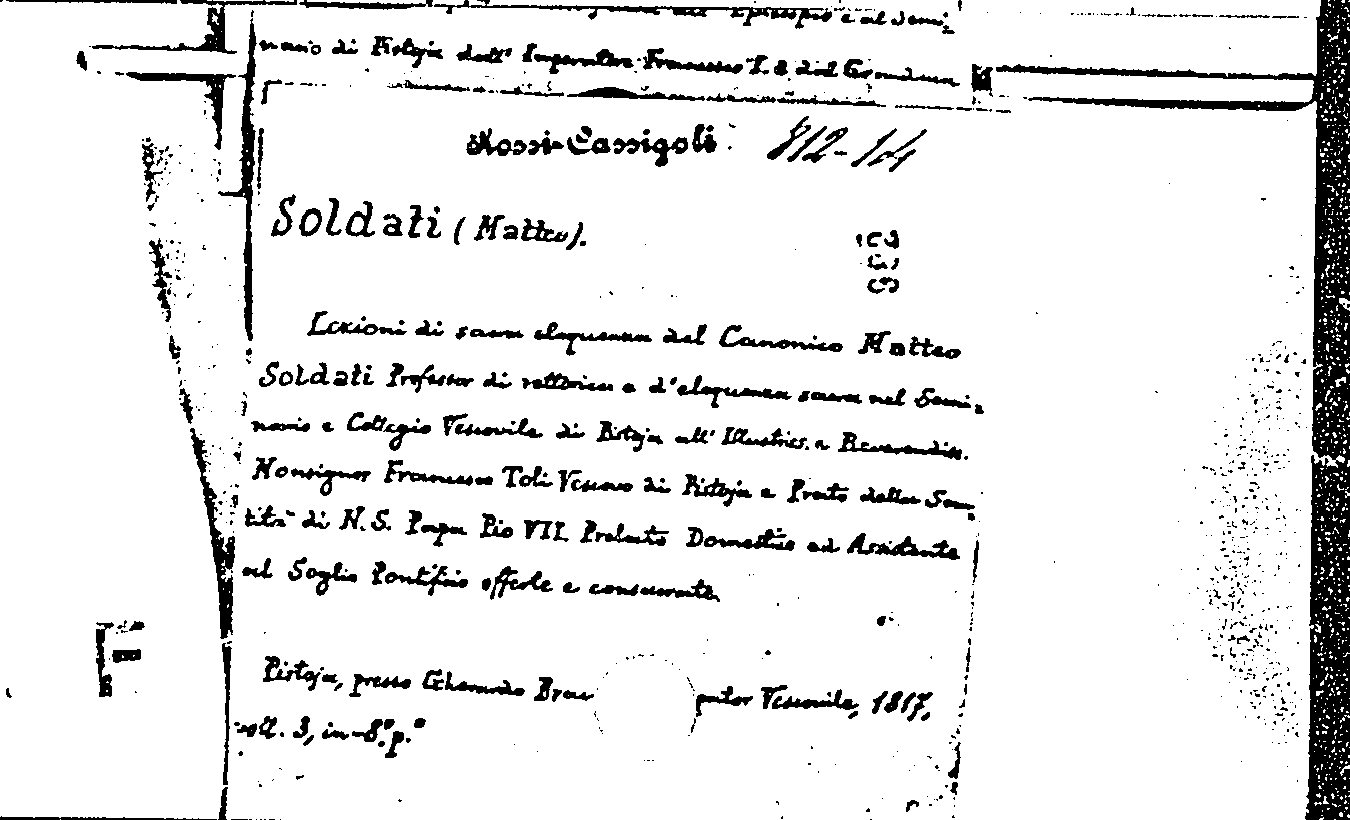 Episcopio e al Semi=
nario di Pistoja dall' Imperatore Francesco I. e dal Granduca
Rossi-Cassigoli 812-14
Soldati (Matteo).
Lezioni di sacra eloquenza del Canonico Matteo
Soldati Professor di rettorica e d'eloquenza sacra nel Semi=
nario e Collegio Vescovile di Pistoja all' Illustriss. e Reverendiss.
Monsignor Francesco Toli Vescovo di Pistoja e Prato della San=
tità di N.S. Papa Pio VII. Prelato Domestico ed Assistente
al Soglio Pontificio offerte e consacrate.
Pistoja, presso Gherardo Brac pator Vescovile, 1817,
voll. 3, in-8.° p.°